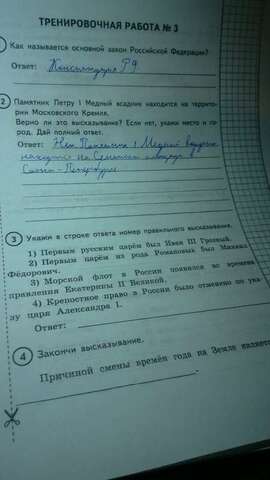 ТРЕНИРОВОЧНАЯ РАБОТА № 3
Как называется основной закон Российской Федерации?
Ответ: Конституция РФ
2 Памятник Петру I Медный всадник находится на террито-
рии Московского Кремля.
Верно ли это высказывание? Если нет, укажи место и го-
род. Дай полный ответ.
Ответ: Нет. Памятник Медный всадник
находится на Сенатской площади
Санкт-Петербурга
3 Укажи в строке ответа номер правильного высказывания.
1) Первым русским царём был Иван III Грозный.
2) Первым царём из рода Романовых был Михаил
Фёдорович.
3) Морской флот в России появился во времена
правления Екатерины II Великой.
4) Крепостное право в России было отменено по ука-
зу царя Александра I.
Ответ:
4 Закончи высказывание.
Причиной смены времён года на Земле является